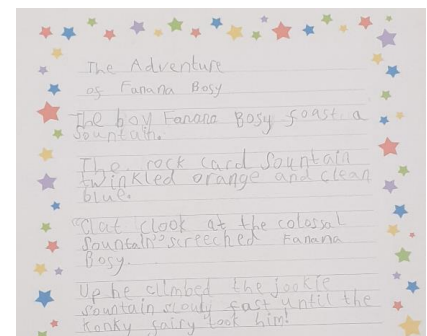 The Adventure
of Fanana Bosy
The boy Fanana Bosy foast a
sountain.
The rock card sountain
twinkled orange and clean
blue.
"Clat clook at the colossal
sountain" screeched Fanana
Bosy.
Up he climbed the jookie
sountain slowly fast until the
konky fairy took him!